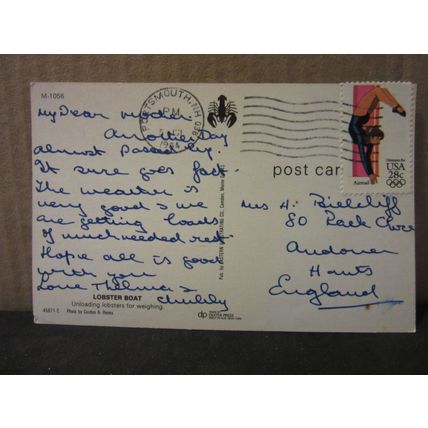 M-1056
PORTSMOUTH, NH 038
PM
1984
My Dear
Another Day
almost passed by.
It sure goes fast.
The weather is
very good & we
are getting loads
of much needed rest
Hope all is good
with you
Love Thelma &
LOBSTER BOAT
Unloading lobsters for weighing.
45871-E Photo by Gordon A.
Camden, Maine
post car
Olympics 84
USA
28c
Airmail
Mrs H.
80
Andover
Hants
England
dp
DEXTER PRESS